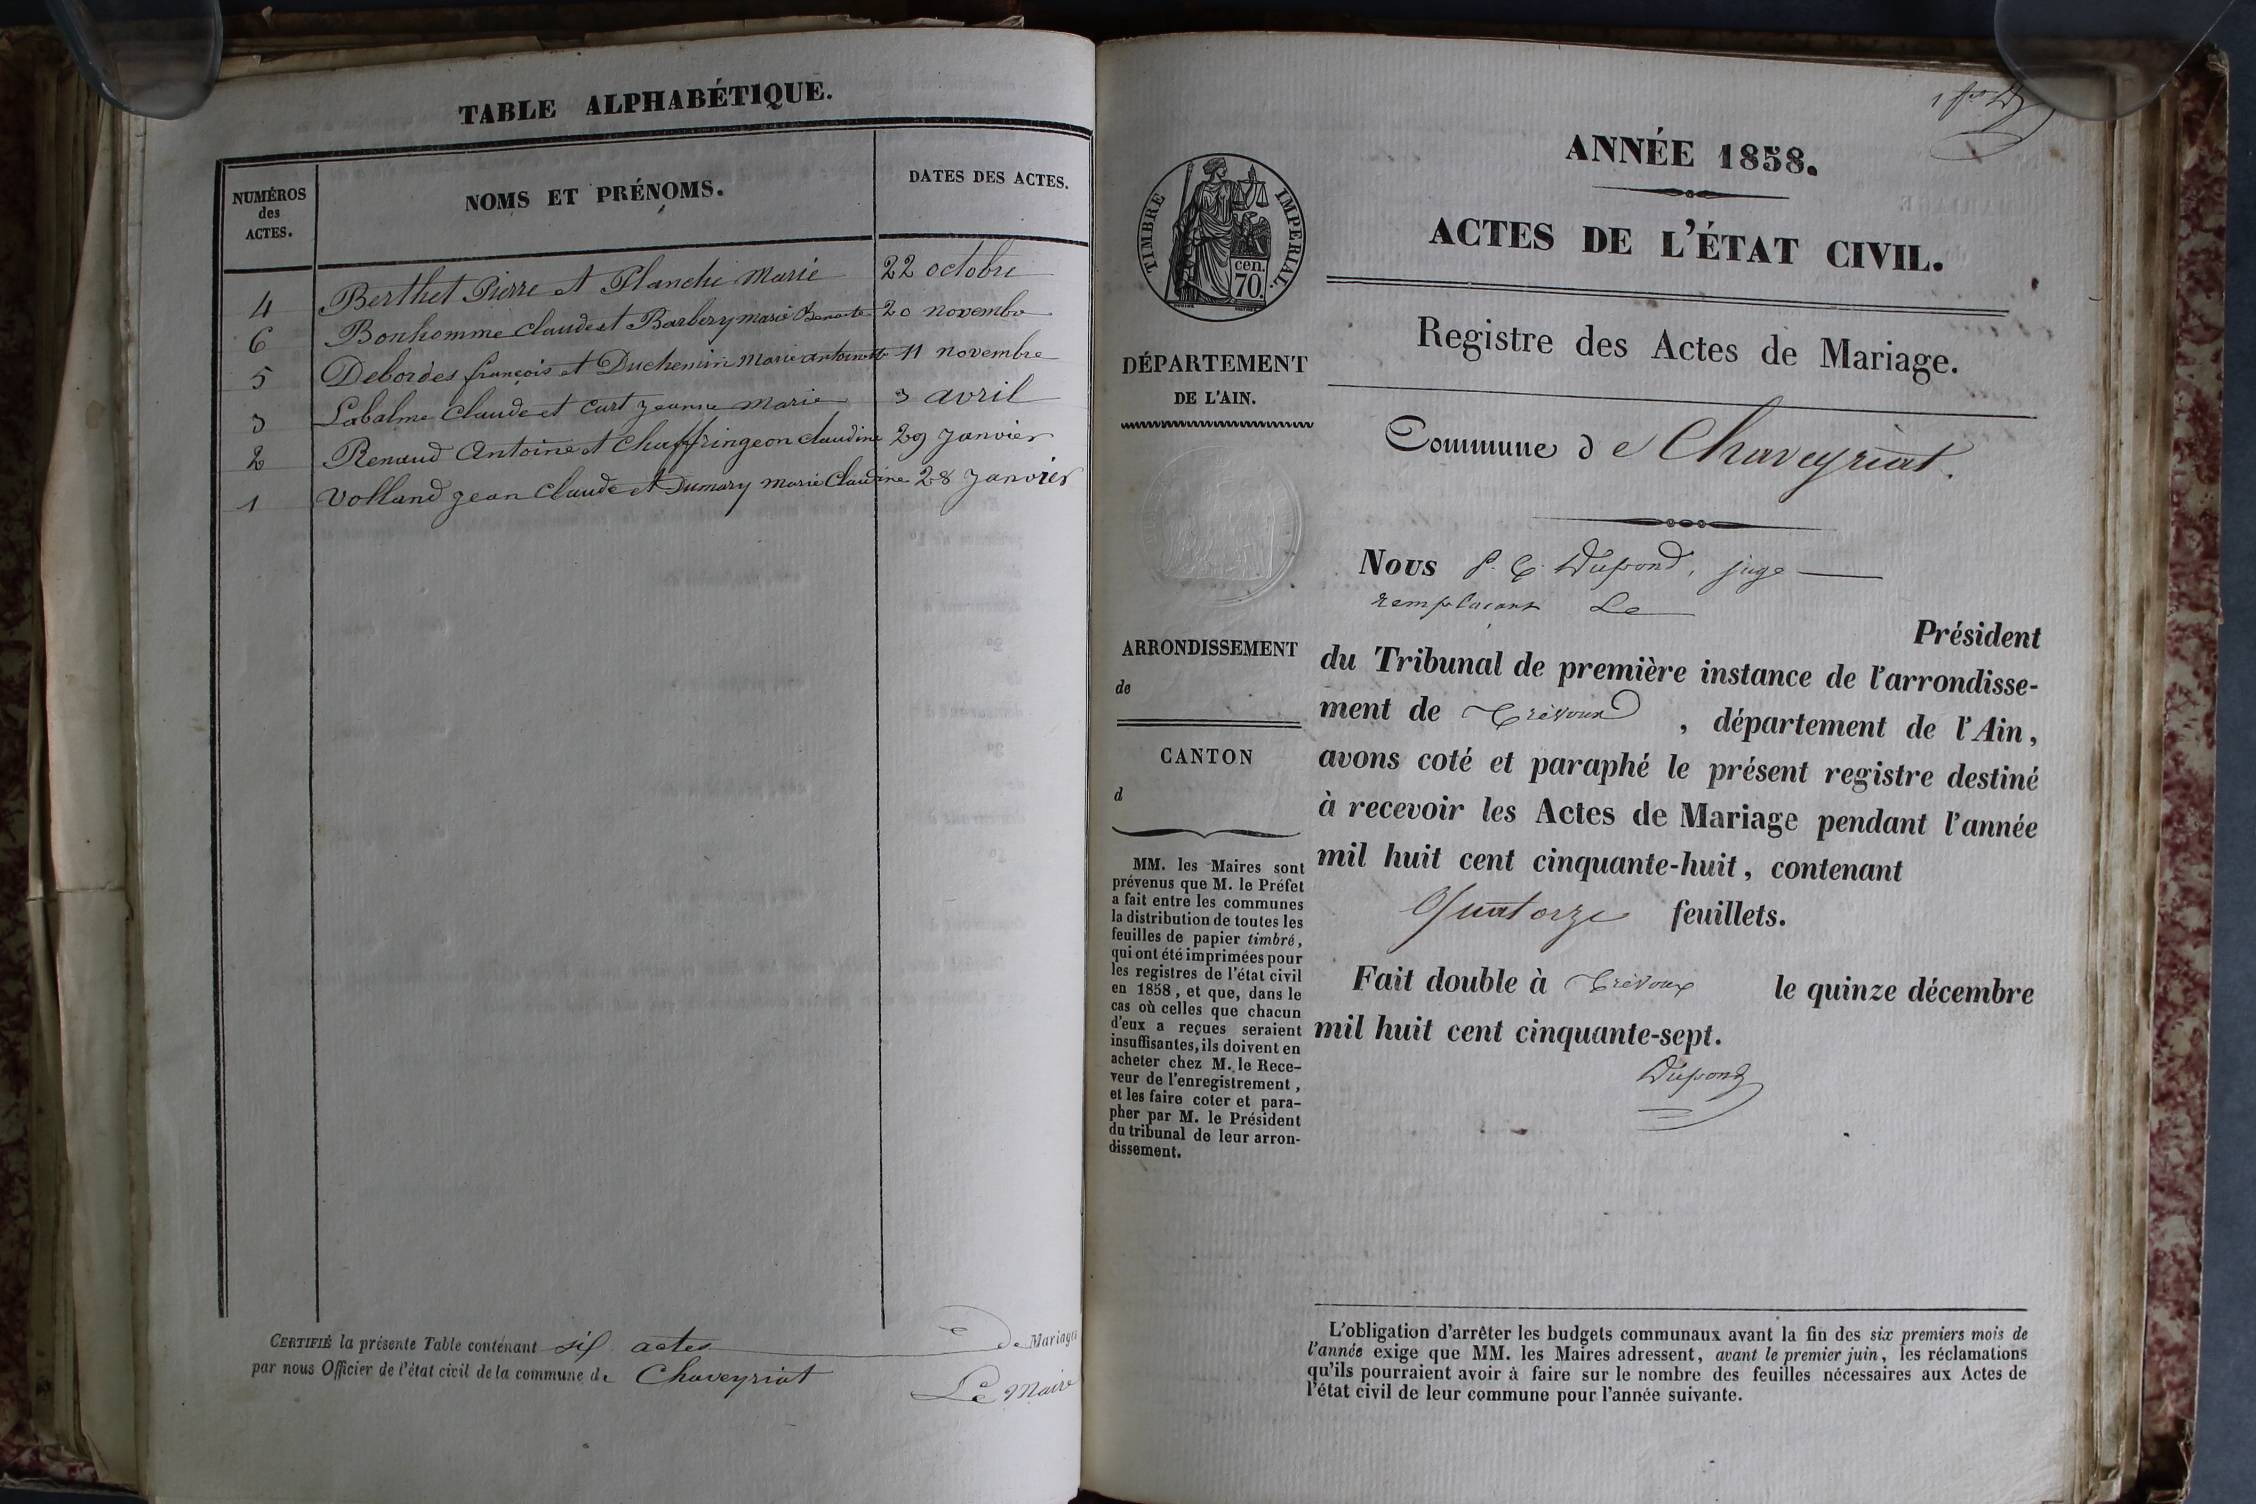 TABLE ALPHABÉTIQUE.
NUMÉROS
des
ACTES.
NOMS ET PRÉNOMS.
DATES DES ACTES.
4 Berthet Pierre et Planche Marie 22 octobre
6 Bonhomme Claude et Barbery marie 20 novembre
5 Debordes françois et Duchemin Marie antoinette 11 novembre
3 Labalme Claude et Curt Jeanne Marie 3 avril
2 Renaud Antoine et Chaffringeon claudine 29 Janvier
1 Volland jean Claude et Dumary marie Claudine 28 Janvier
CERTIFIÉ la présente Table contenant six actes de Mariages
par nous Officier de l'état civil de la commune de Chaveyriat
Le Maire
ANNÉE 1858.
ACTES DE L'ÉTAT CIVIL.
Registre des Actes de Mariage.
Commune de Chaveyriat.
TIMBRE IMPERIAL.
cen.
70.
DÉPARTEMENT
DE L'AIN.
ARRONDISSEMENT
de
CANTON
d
MM. les Maires sont
prévenus que M. le Préfet
a fait entre les communes
la distribution de toutes les
feuilles de papier timbré,
qui ont été imprimées pour
les registres de l'état civil
en 1858, et que, dans le
cas où celles que chacun
d'eux a reçues seraient
insuffisantes, ils doivent en
acheter chez M. le Rece-
veur de l'enregistrement,
et les faire coter et para-
pher par M. le Président
du tribunal de leur arron-
dissement.
Nous P. C. Dupond, juge
remplacant Le
Président
du Tribunal de première instance de l'arrondisse-
ment de Trévoux, département de l'Ain,
avons coté et paraphé le présent registre destiné
à recevoir les Actes de Mariage pendant l'année
mil huit cent cinquante-huit, contenant
Quatorze feuillets.
Fait double à Trévoux le quinze décembre
mil huit cent cinquante-sept.
Dupond
L'obligation d'arrêter les budgets communaux avant la fin des six premiers mois de
l'année exige que MM. les Maires adressent, avant le premier juin, les réclamations
qu'ils pourraient avoir à faire sur le nombre des feuilles nécessaires aux Actes de
l'état civil de leur commune pour l'année suivante.